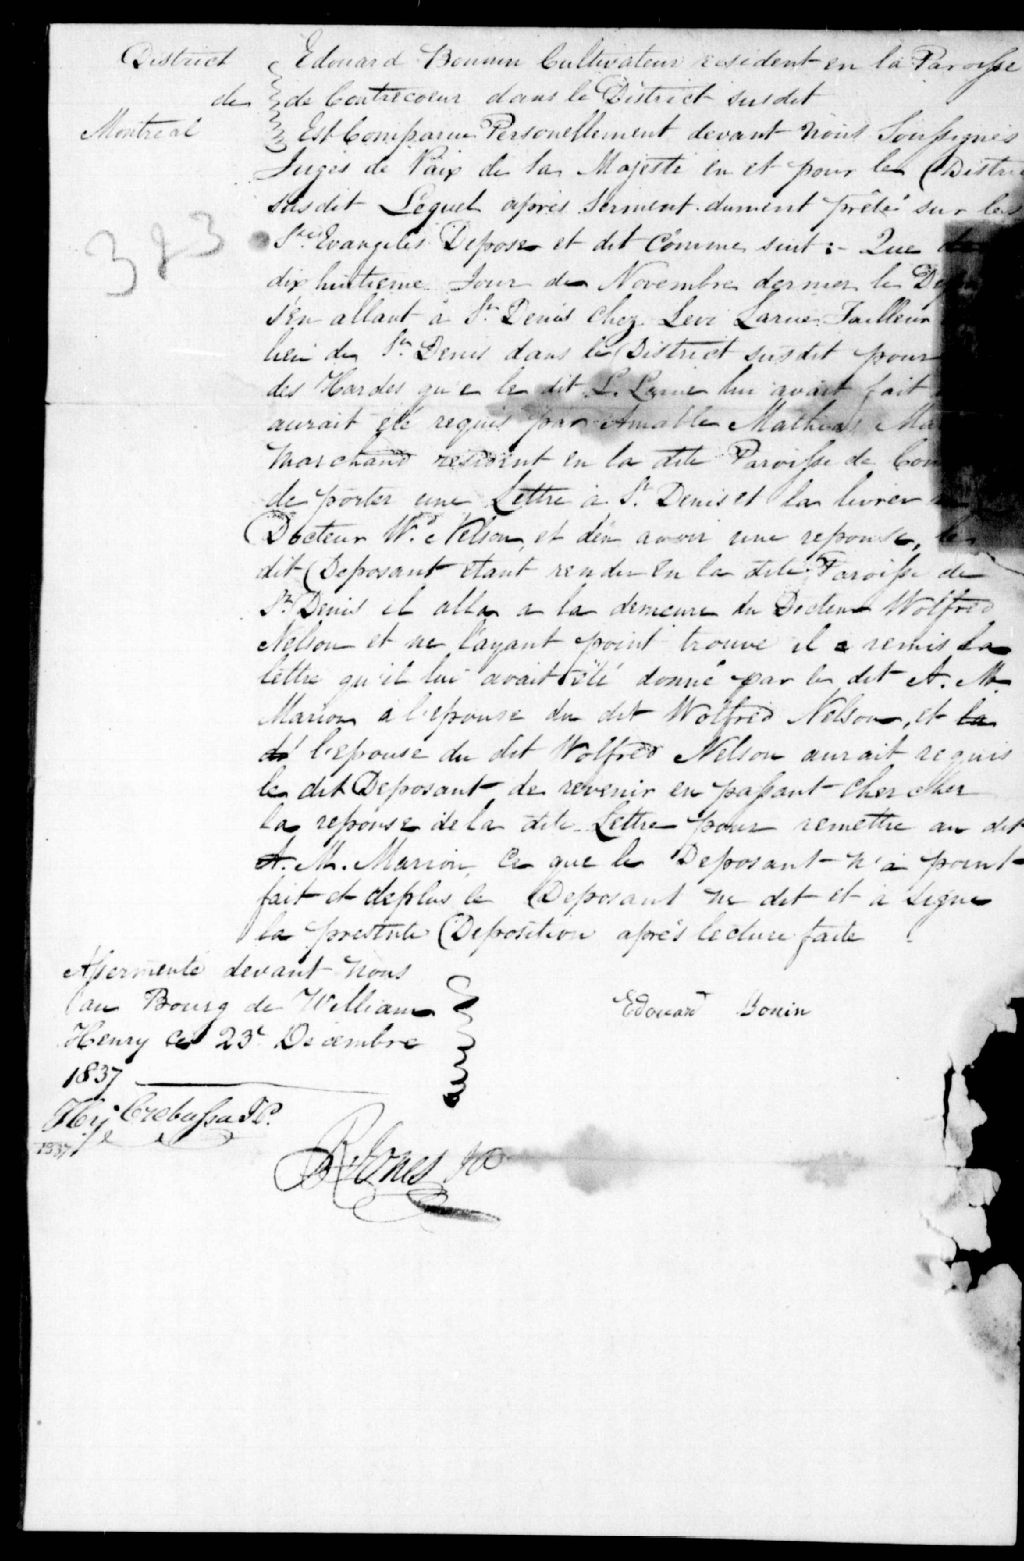 District
de
Montreal
Edouard Bonnin Cultivateur resident en la Paroisse
de Contrecoeur dans le District susdit
Est Comparue Personellement devant nous Soussignés
Juges de Paix de la Majesté en et pour le Distri
susdit Lequel après Serment dument prêté sur les
Sts Evangiles Depose et dit Comme suit :- Que
dix huitieme Jour de Novembre dernier le Dep
s'en allant à St Denis Chez Levi Larue Tailleur
lieu de St Denis dans le District susdit pour
des Hardes que le dit L. Larue lui avait fait
aurait été requis par Amable Mathias Mar
Marchand resident en la dite Paroisse de Con
de porter une Lettre à St Denis et la livrer
Docteur Wd Nelson, et d'en avoir une reponse, le
dit Deposant etant rendu en la dite Paroisse de
St Denis il alla a la demeure du Docteur Wolfred
Nelson et ne l'ayant point trouvé il a remis la
lettre qu'il lui avait été donné par le dit A. M.
Marion a l'epouse du dit Wolfred Nelson, et la
dt l'epouse du dit Wolfred Nelson aurait requis
le dit Deposant de revenir en passant cher cher
la reponse de la dite Lettre pour remettre au dit
A. M. Marion, Ce que le Deposant n'a point
fait et deplus le Deposant ne dit et a signé
la presente Deposition après lecture faite
383
Assermenté devant nous
au Bourg de William
Henry ce 23e Decembre
1837
Edouard Bonin
Hy Crebassa J.P.
1837
R. Jones JP